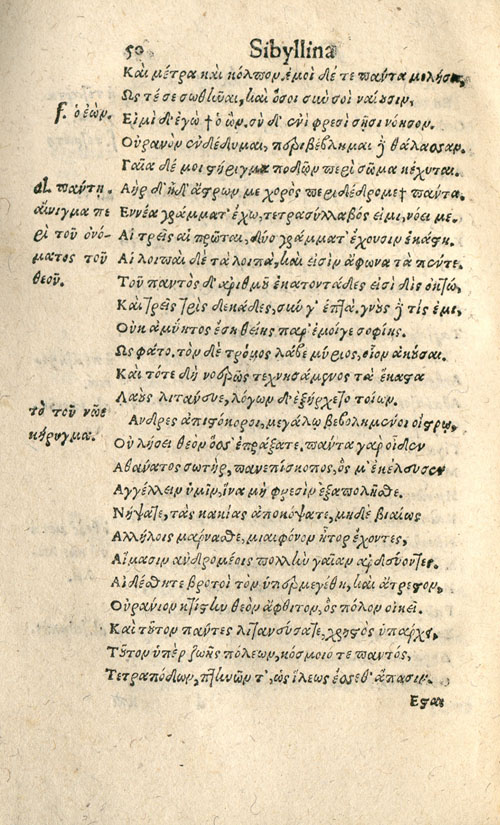 50 Sibyllina
Καὶ μέτρα καὶ κόλπον. ἐμοὶ δέ τε πάντα μελήσει,
Ως τέ σε σωθῆναι, καὶ ὅσοι σιὺ σοὶ ναίουσιν,
f. ὁ ἐὼν.
Εἰμὶ δ' ἐγὼ † ὁ ὢν. σὺ δ' ἐνὶ φρεσὶ σῇσι νόησον.
Οὐρανὸν ἐνδέδυμαι, περιβέβλημαι ἢ θάλασσαν.
Γαῖα δέ μοι στήριγμα ποδῶν περὶ σῶμα κέχυται.
al. πάντη.
Αὴρ δ' ἠδ' ἄστρων με χορὸς περιδέδρομε† πάντα.
αἴνιγμα πε
Εννέα γράμματ' ἔχω, τετρασύλλαβός εἰμι, νόει με.
ρὶ τοῦ ὀνό-
Αἱ τρεῖς αἱ πρῶται, δύο γράμματ' ἔχουσιν ἑκάστη.
ματος τοῦ
Αἱ λοιπαὶ δὲ τὰ λοιπά, καὶ εἰσὶν ἄφωνα τὰ πέντε.
θεοῦ.
Τοῦ παντὸς δ' ἀριθμοῦ ἑκατοντάδες εἰσὶ δὶς ὀκτώ,
Καὶ τρεῖς τρὶς δεκάδες, σύν γ' ἑπτά. γνοὺς ἢ τίς εἰμι,
Οὐκ ἀμύητος ἔσῃ θείης παρ' ἐμοί γε σοφίης.
Ως φάτο. τὸν δὲ τρόμος λάβε μύριος, οἷον ἀκῦσαι.
Καὶ τότε δὴ νοερῶς τεχνησάμενος τὰ ἕκαστα
Λαοὺς λιτάνευε, λόγων δ' ἐξήρχετο τοίων.
τὸ τοῦ νῶε
Ανδρες ἀπιστόκοροι, μεγάλῳ βεβολημένοι οἴστρῳ,
κήρυγμα.
Οὐ λήσει θεὸν ὅσ' ἐπράξατε. πάντα γὰρ οἶδεν
Αθάνατος σωτήρ, πανεπίσκοπος, ὅς μ' ἐκέλευσεν
Αγγέλλειν ὑμῖν, ἵνα μὴ φρεσὶν ἐξαπολῆσθε.
Νήψατε, τὰς κακίας ἀποκόψατε, μηδὲ βιαίως
Αλλήλοις μάρνασθε, μιαιφόνον ἦτορ ἔχοντες,
Αἵμασιν ἀνδρομέοις πολλὴν γαῖαν ἀρδεύοντες.
Αἰδέσθητε βροτοὶ τὸν ὑπερμεγέθη, καὶ ἄτρεστον,
Οὐράνιον κτίστην θεὸν ἄφθιτον, ὃς πόλον οἰκεῖ.
Καὶ τοῦτον πάντες λιτανεύσατε, χρηστὸς ὑπάρχει,
Τοῦτον ὑπὲρ ζωῆς πόλεων, κόσμοιό τε παντός,
Τετραπόδων, πτηνῶν τ', ὡς ἵλεως ἔσσεθ' ἅπασιν.
Εσαι